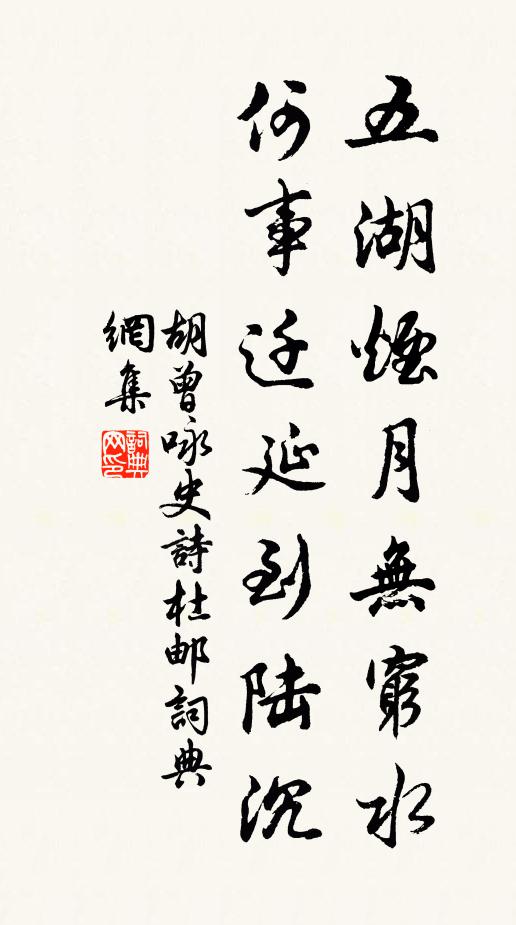 五湖煙月無窮水
何事迁延到陆沉
胡曾咏史詩杜邮詞典
網集
詞典网印